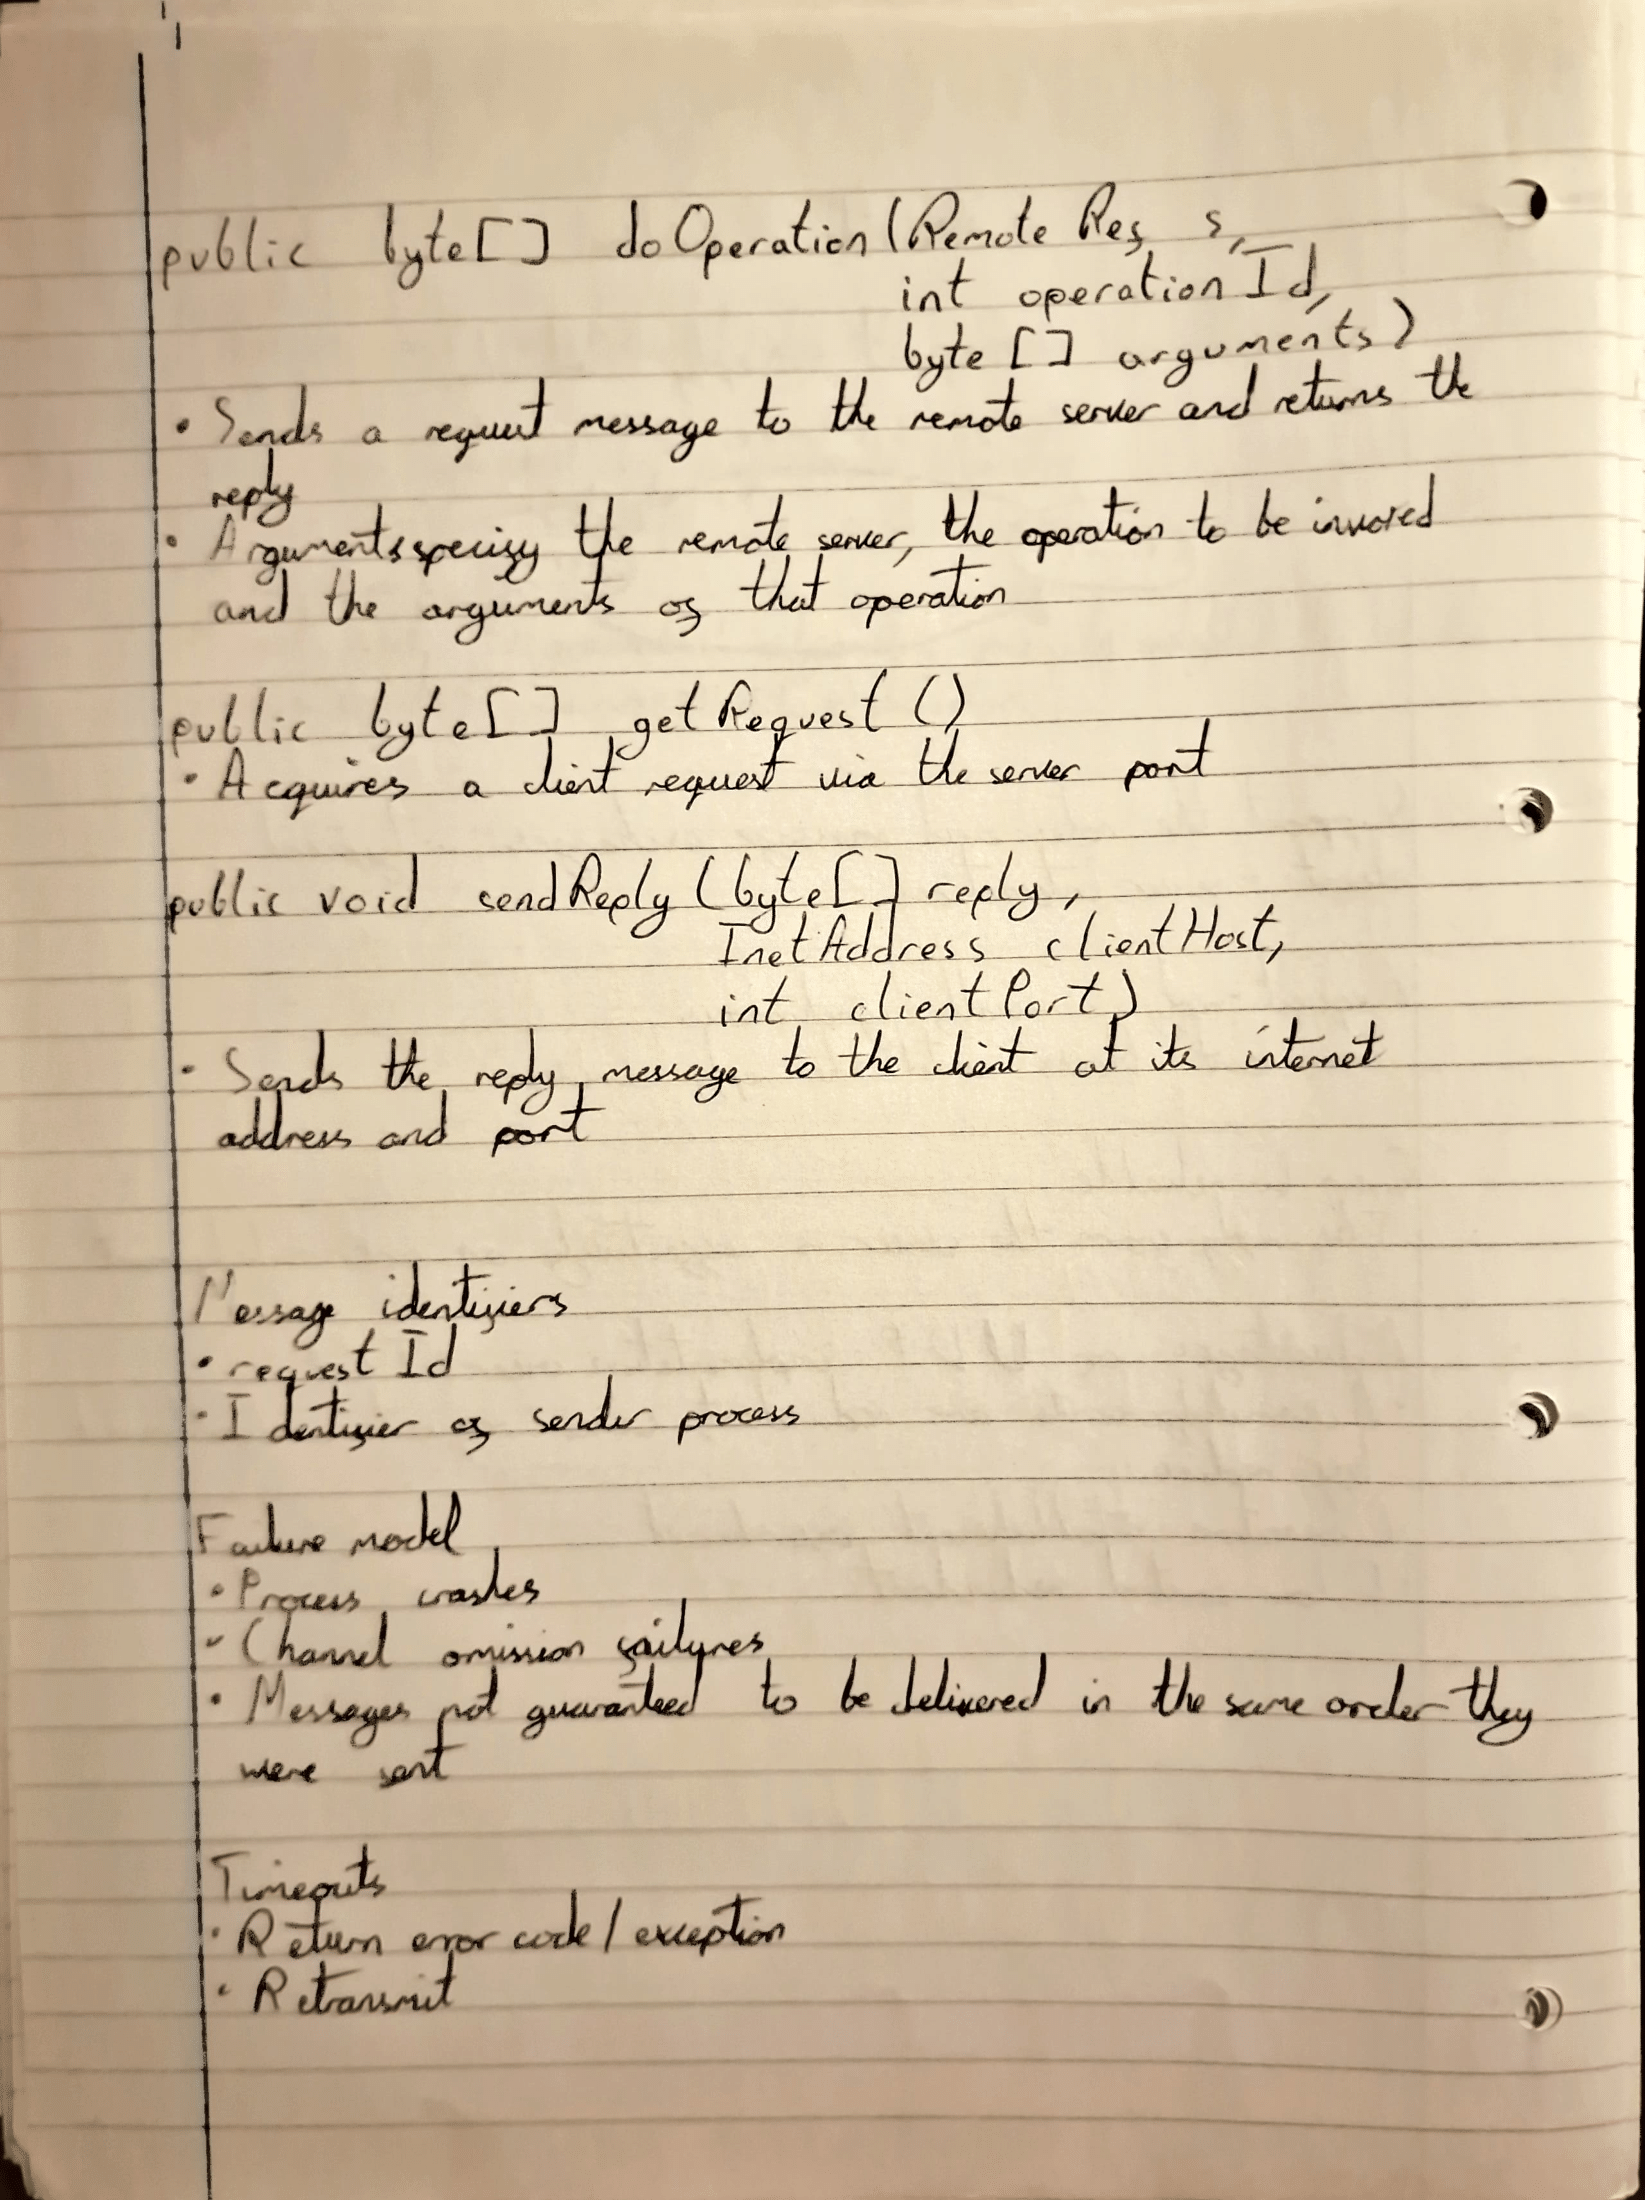 public byte[] doOperation(RemoteRef s,
int operationId,
byte[] arguments)
• Sends a request message to the remote server and returns the
reply
• Arguments specify the remote server, the operation to be invoked
and the arguments of that operation
public byte[] getRequest()
• Acquires a client request via the server port
public void sendReply(byte[] reply,
InetAddress clientHost,
int clientPort)
• Sends the reply message to the client at its internet
address and port
Message identifiers
• requestId
• Identifier of sender process
Failure model
• Process crashes
• Channel omission failures
• Messages not guaranteed to be delivered in the same order they
were sent
Timeouts
• Return error code/exception
• Retransmit